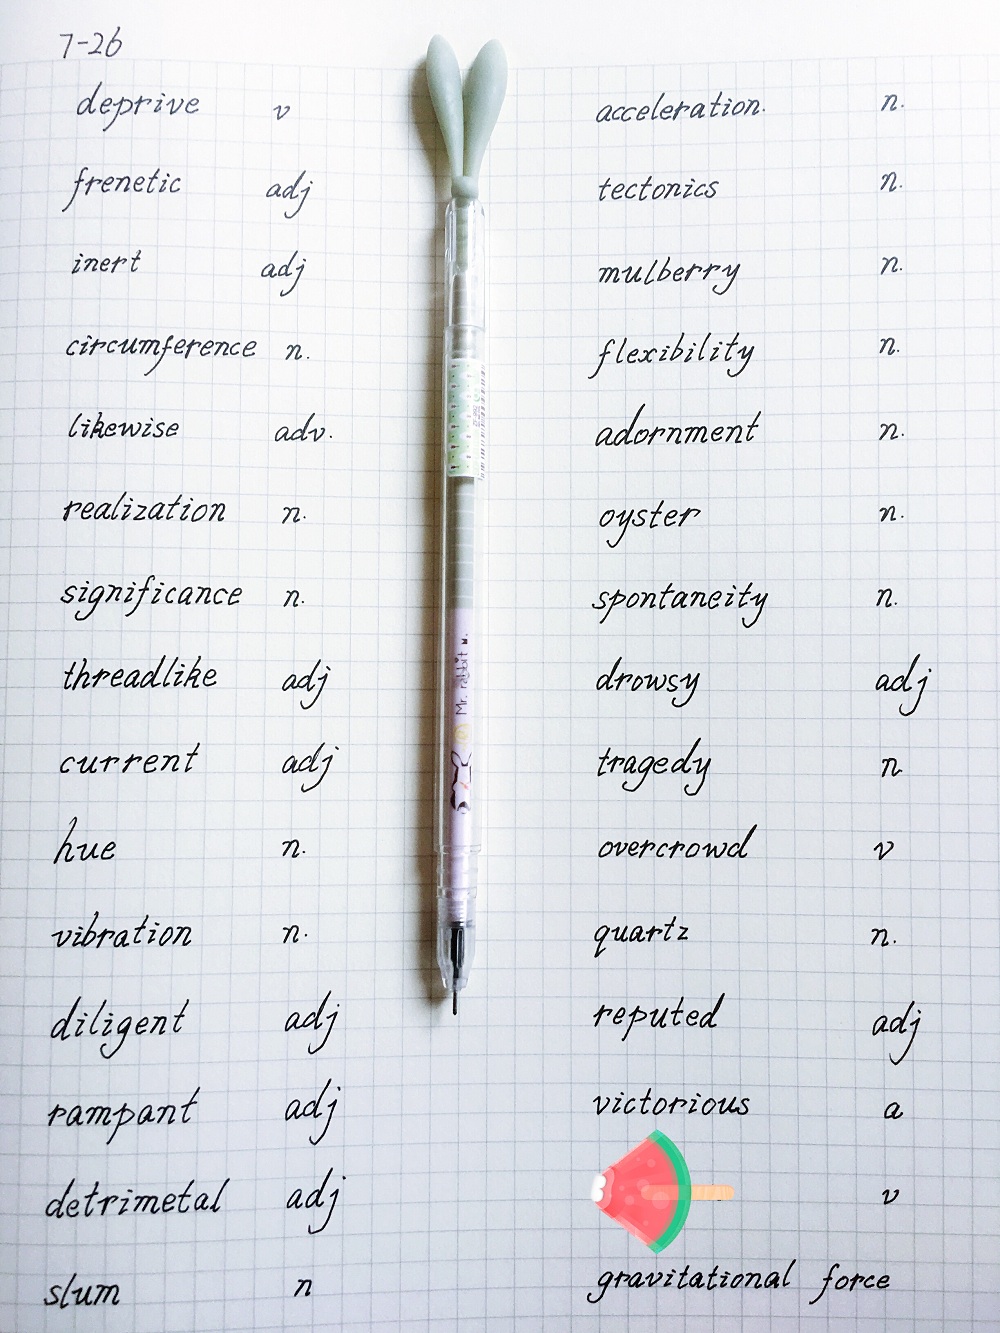 7-26
deprive v
frenetic adj
inert adj
circumference n.
likewise adv.
realization n.
significance n.
threadlike adj
current adj
hue n.
vibration n.
diligent adj
rampant adj
detrimetal adj
slum n
Mr. rabbit
acceleration. n.
tectonics n.
mulberry n.
flexibility n.
adornment n.
oyster n.
spontaneity n.
drowsy adj
tragedy n
overcrowd v
quartz n.
reputed adj
victorious a
v
gravitational force